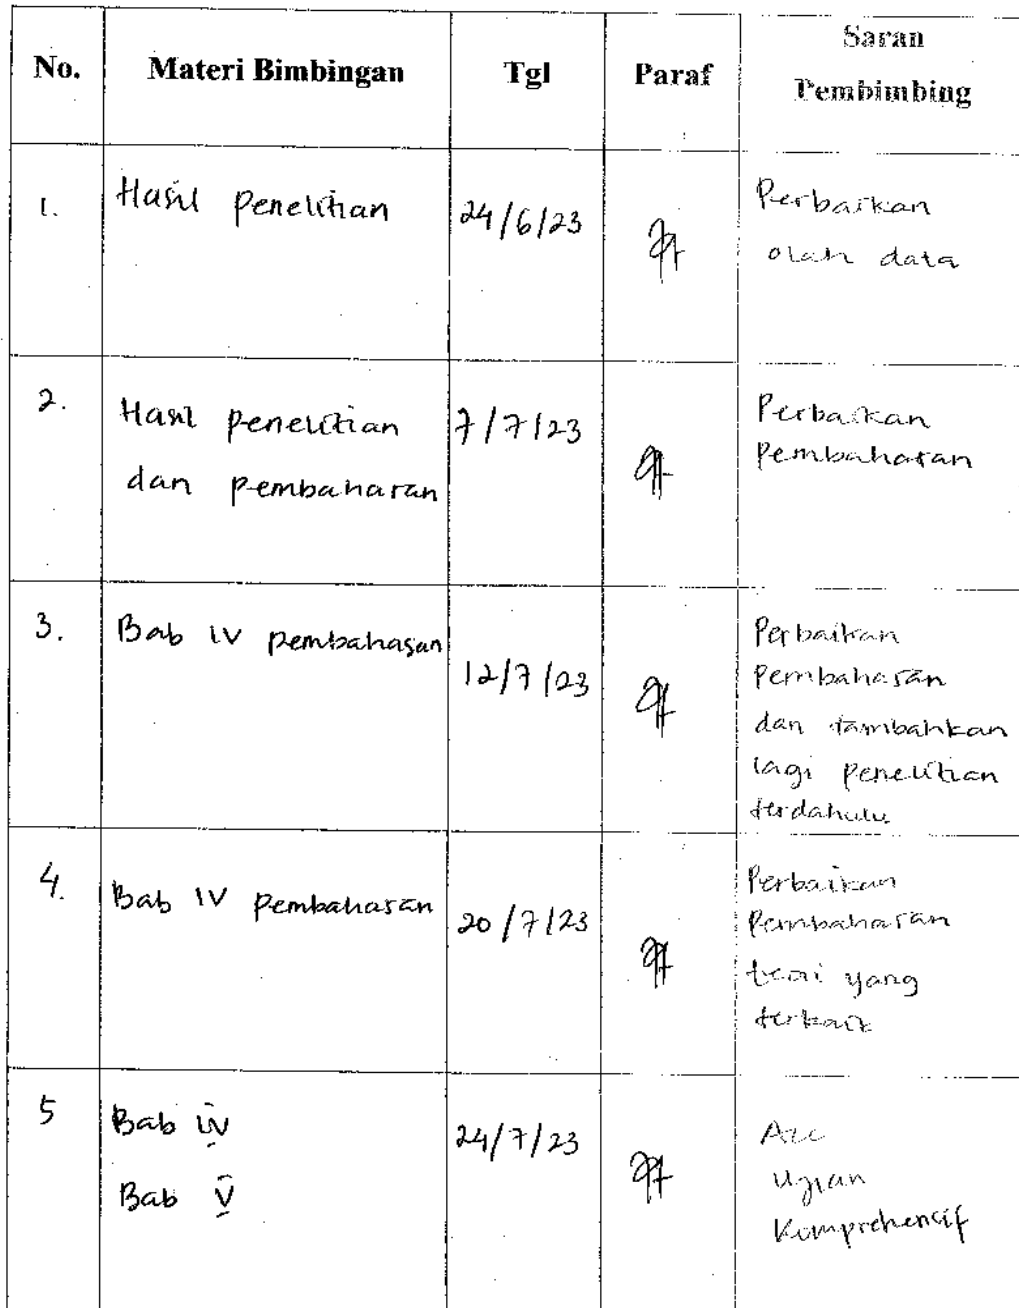 No. Materi Bimbingan Tgl Paraf Saran
Pembimbing
1. Hasil penelitian 24/6/23 Perbaikan
olah data
2. Hasil penelitian 7/7/23 Perbaikan
dan pembahasan Pembahasan
3. Bab IV pembahasan 12/7/23 Perbaikan
Pembahasan
dan tambahkan
lagi penelitian
terdahulu
4. Bab IV Pembahasan 20/7/23 Perbaikan
Pembahasan
teori yang
terkait
5 Bab IV 24/7/23 Acc
Bab V Ujian
Komprehensif